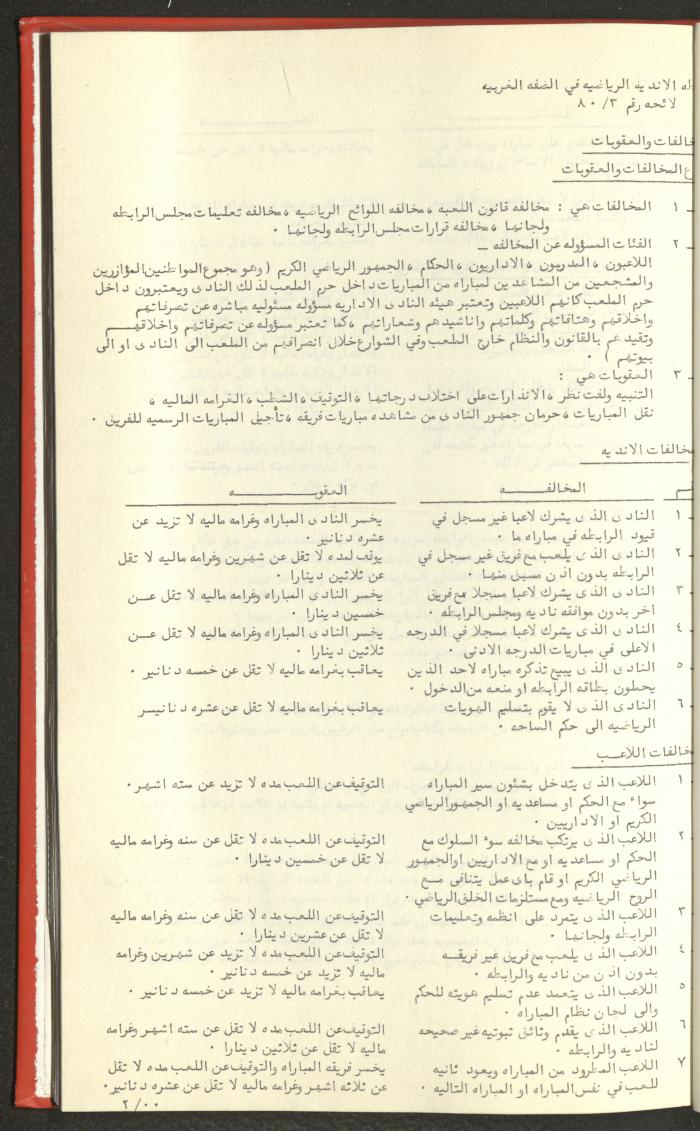 طه الانديه الرياضيه في الضفه الغربيه
لائحه رقم ٣/ ٨٠
خالفات والعقوبات
ع المخالفات والعقوبات
١ـ المخالفات هي : مخالفه قانون اللعبه ، مخالفه اللوائح الرياضيه ، مخالفه تعليمات مجلس الرابطه
ولجانها ، مخالفه قرارات مجلس الرابطه ولجانها ٠
٢ـ الفئات المسؤوله عن المخالفه ـ
اللاعبون ، المدربون ، الاداريون ، الحكام ، الجمهور الرياضي الكريم ( وهو مجموع المواطنين المؤازرين
والمشجعين من المشاهدين لمباراه من المباريات داخل حرم الملعب لذلك النادى ويعتبرون داخل
حرم الملعب كانهم اللاعبين وتعتبر هيئه النادى الاداريه مسؤوله مسئوليه مباشره عن تصرفاتهم
واخلاقهم وهتافاتهم وكلماتهم واناشيدهم وشعاراتهم ، كما تعتبر مسؤوله عن تصرفاتهم واخلاقهم
وتقيدهم بالقانون والنظام خارج الملعب وفي الشوارع خلال انصرافهم من الملعب الى النادى او الى
بيوتهم ) ٠
٣ـ العقوبات هي :
التنبيه ولفت نظر ، الانذارات على اختلاف درجاتها ، التوقيف ، الشطب ، الغرامه الماليه ،
نقل المباريات ، حرمان جمهور النادى من مشاهده مباريات فريقه ، تأجيل المباريات الرسميه للفريق ٠
خالفات الانديه
م المخالفـــه العقوبـــه
١ـ النادى الذى يشرك لاعبا غير مسجل في يخسر النادى المباراه وغرامه ماليه لا تزيد عن
قيود الرابطه في مباراه ما ٠ عشره دنانير ٠
٢ـ النادى الذى يلعب مع فريق غير مسجل في يوقف لمده لا تقل عن شهرين وغرامه ماليه لا تقل
الرابطه بدون اذن مسبق منها ٠ عن ثلاثين دينارا ٠
٣ـ النادى الذى يشرك لاعبا مسجلا مع فريق يخسر النادى المباراه وغرامه ماليه لا تقل عن
اخر بدون موافقه ناديه ومجلس الرابطه ٠ خمسين دينارا ٠
٤ـ النادى الذى يشرك لاعبا مسجلا في الدرجه يخسر النادى المباراه وغرامه ماليه لا تقل عن
الاعلى في مباريات الدرجه الادنى ٠ ثلاثين دينارا ٠
٥ـ النادى الذى يبيع تذكره مباراه لاحد الذين يعاقب بغرامه ماليه لا تقل عن خمسه دنانير ٠
يحملون بطاقه الرابطه او منعه من الدخول ٠
٦ـ النادى الذى لا يقوم بتسليم الهويات يعاقب بغرامه ماليه لا تقل عن عشره دنانيسر
الرياضيه الى حكم الساحه ٠
خالفات اللاعـب
١ـ اللاعب الذى يتدخل بشئون سير المباراه التوقيف عن اللعب مده لا تزيد عن سته اشهر ٠
سواء مع الحكم او مساعديه او الجمهور الرياضي
الكريم او الاداريين ٠
٢ـ اللاعب الذى يرتكب مخالفه سوء السلوك مع التوقيف عن اللعب مده لا تقل عن سنه وغرامه ماليه
الحكم او مساعديه او مع الاداريين او الجمهور لا تقل عن خمسين دينارا ٠
الرياضي الكريم او قام باى عمل يتنافى مع
الروح الرياضيه ومع مستلزمات الخلق الرياضي ٠
٣ـ اللاعب الذى يتمرد على انظمه وتعليمات التوقيف عن اللعب مده لا تقل عن سنه وغرامه ماليه
الرابطه ولجانها ٠ لا تقل عن عشرين دينارا ٠
٤ـ اللاعب الذى يلعب مع فريق غير فريقه التوقيف عن اللعب مده لا تزيد عن شهرين وغرامه
بدون اذن من ناديه والرابطه ٠ ماليه لا تزيد عن خمسه دنانير ٠
٥ اللاعب الذى يتعمد عدم تسليم هويته للحكم يعاقب بغرامه ماليه لا تزيد عن خمسه دنانير ٠
والى لجان نظام المباراه ٠
٦ اللاعب الذى يقدم وثائق ثبوتيه غير صحيحه التوقيف عن اللعب مده لا تقل عن سته اشهر وغرامه
لناديه والرابطه ٠ ماليه لا تقل عن ثلاثين دينارا ٠
٧ اللاعب المطرود من المباراه ويعود ثانيه يخسر فريقه المباراه والتوقيف عن اللعب مده لا تقل
للعب في نفس المباراه او المباراه التاليه ٠ عن ثلاثه اشهر وغرامه ماليه لا تقل عن عشره دنانير ٠
٢/٠٠